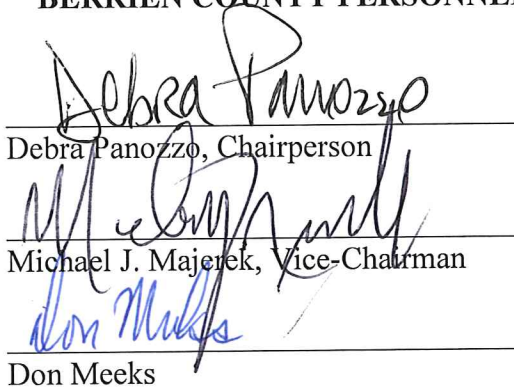 BERRIEN COUNTY PERSONNEL
Debra Panozzo
Debra Panozzo, Chairperson
Michael J. Majerek, Vice-Chairman
Don Meeks
Don Meeks